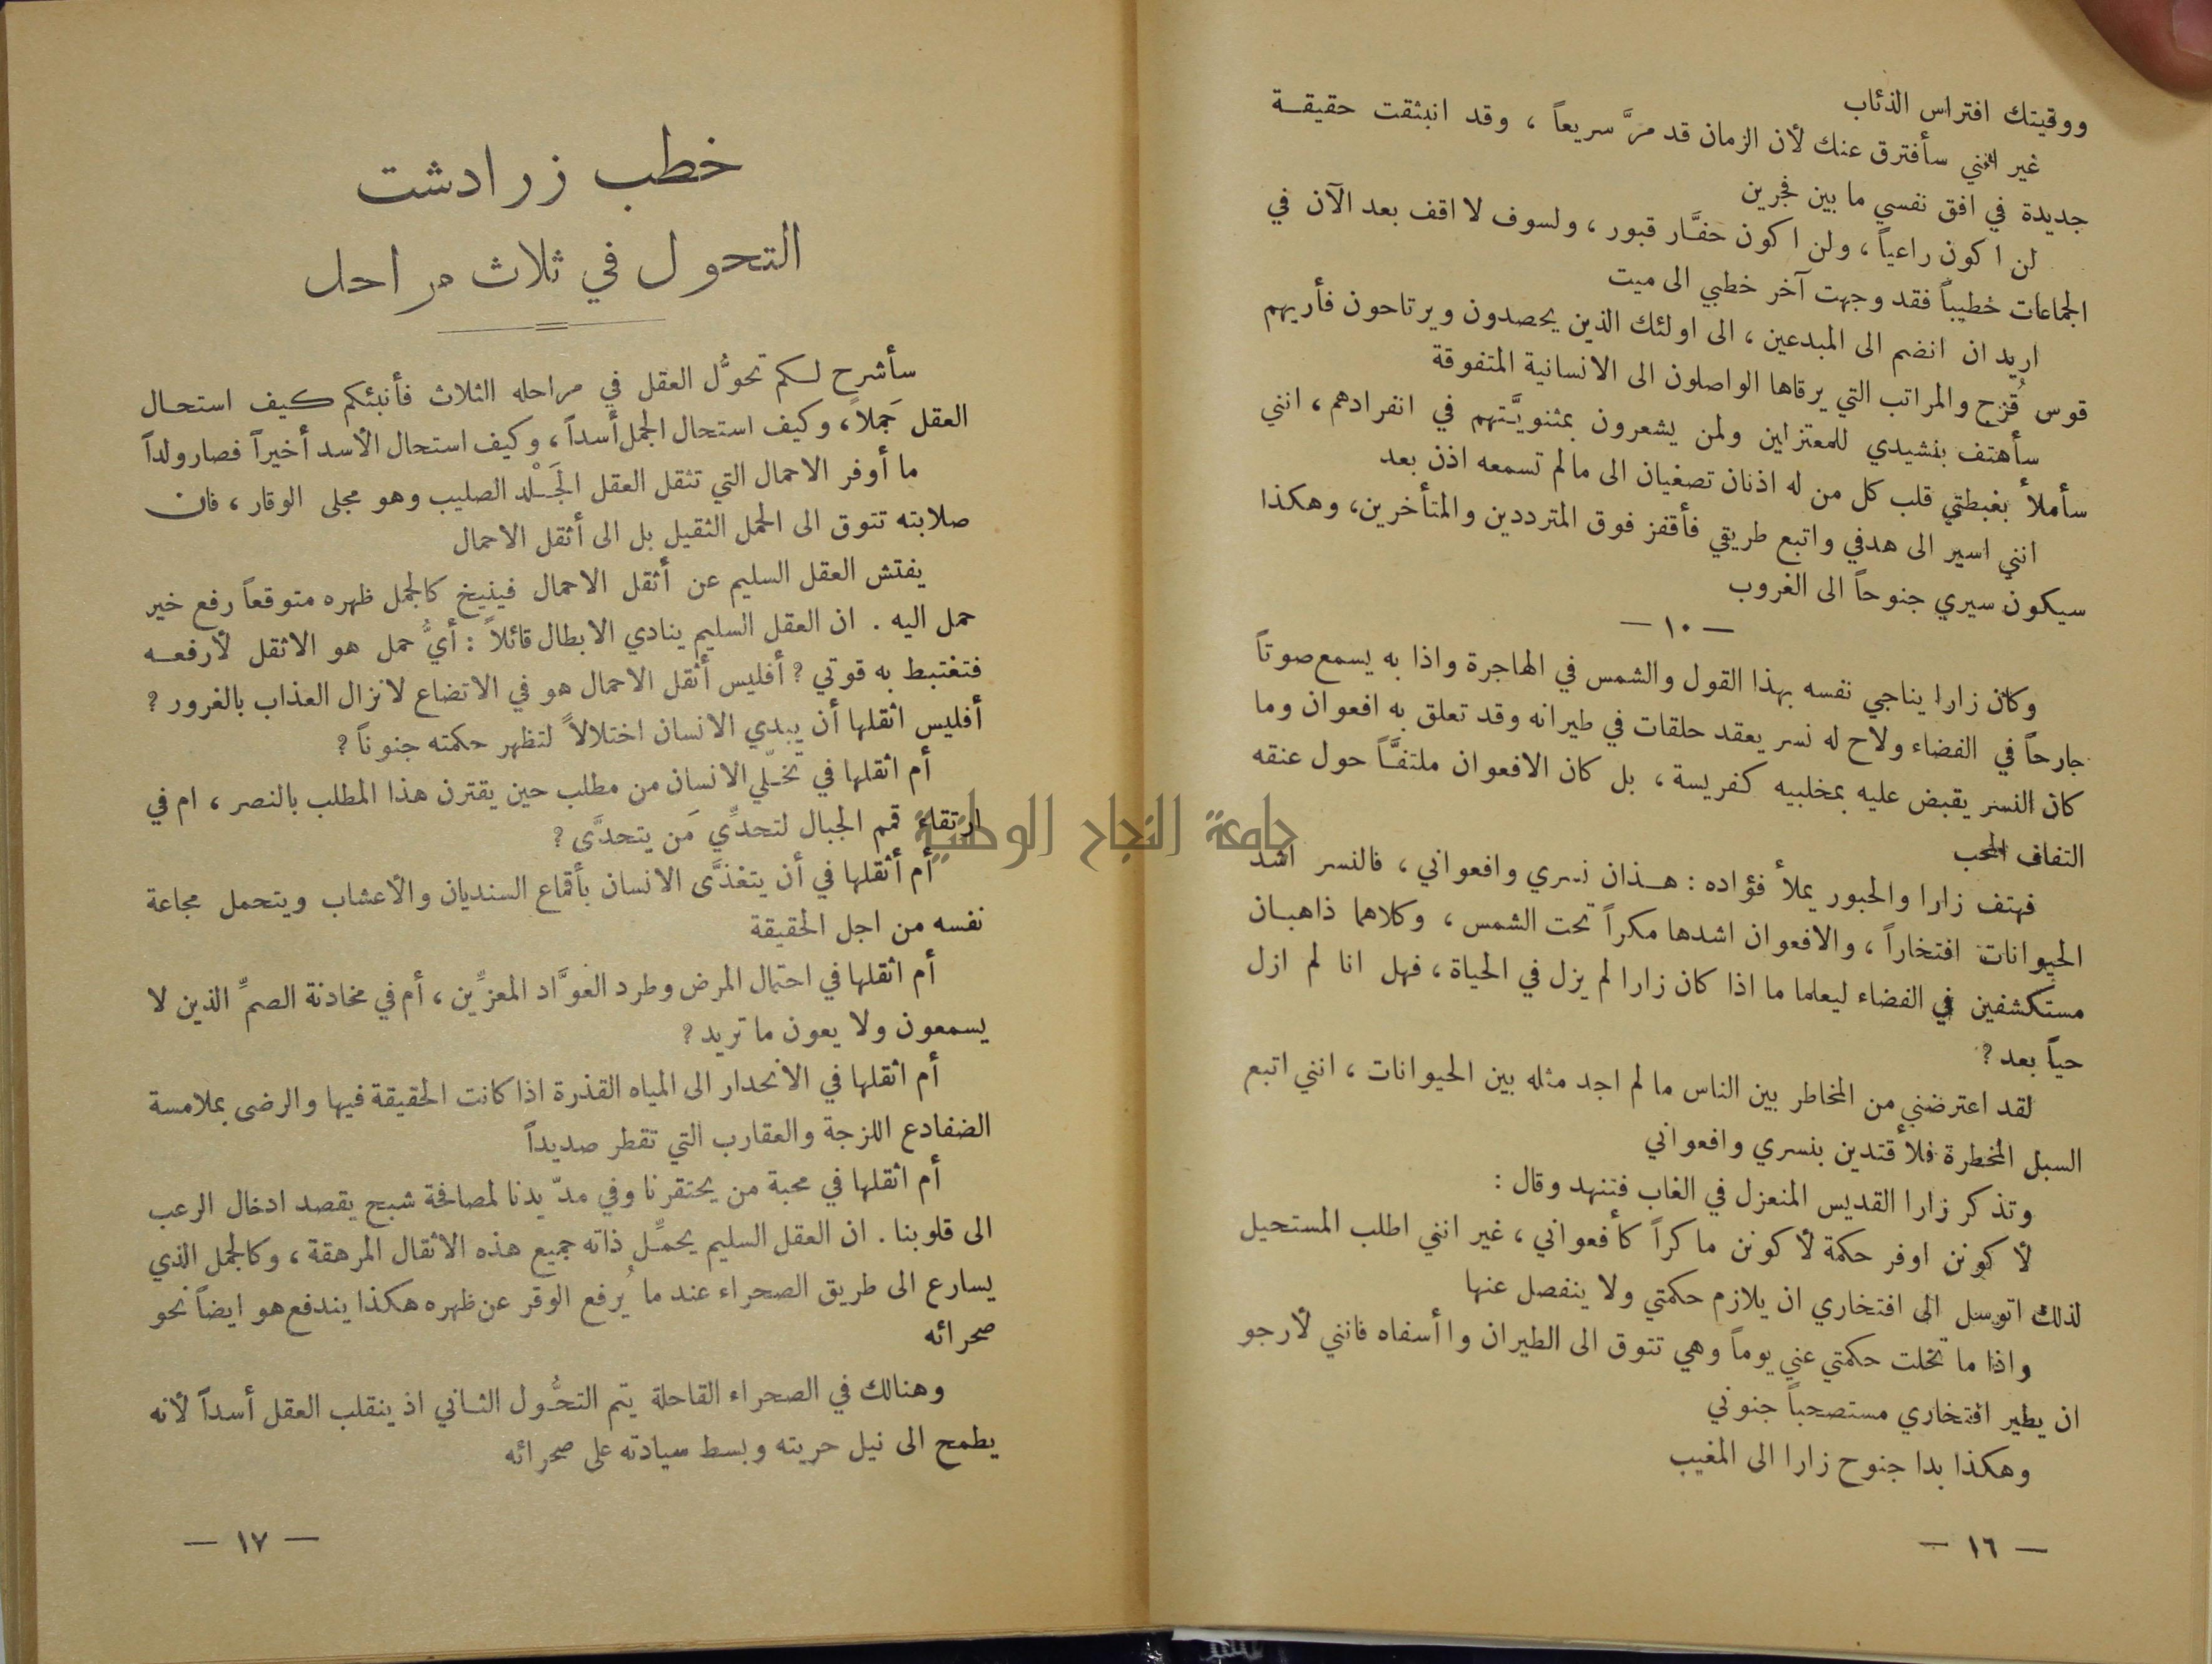 ووقيتك افتراس الذئاب
غير انني سأفترق عنك لأن الزمان قد مرَّ سريعاً ، وقد انبثقت حقيقة
جديدة في افق نفسي ما بين فجرين
لن اكون راعياً ، ولن اكون حفَّار قبور ، ولسوف لا اقف بعد الآن في
الجماعات خطيباً فقد وجهت آخر خطبي الى ميت
اريد ان انضم الى المبدعين ، الى اولئك الذين يحصدون ويرتاحون فأريهم
قوس قُزح والمراتب التي يرقاها الواصلون الى الانسانية المتفوقة
سأهتف بنشيدي للمعتزلين ولمن يشعرون بمثنويَّتهم في انفرادهم ، انني
سأملأ بغبطتي قلب كل من له اذنان تصغيان الى مالم تسمعه اذن بعد
انني اسير الى هدفي واتبع طريقي فأقفز فوق المترددين والمتأخرين، وهكذا
سيكون سيري جنوحاً الى الغروب
— ١٠ —
وكان زارا يناجي نفسه بهذا القول والشمس في الهاجرة واذا به يسمع صوتاً
جارحاً في الفضاء ولاح له نسر يعقد حلقات في طيرانه وقد تعلق به افعوان وما
كان النسر يقبض عليه بمخلبيه كفريسة ، بل كان الافعوان ملتفَّاً حول عنقه
التفاف المحب
فهتف زارا والحبور يملأ فؤاده : هذان نسري وافعواني ، فالنسر اشد
الحيوانات افتخاراً ، والافعوان اشدها مكراً تحت الشمس ، وكلاهما ذاهبان
مستكشفين في الفضاء ليعلما ما اذا كان زارا لم يزل في الحياة ، فهل انا لم ازل
حياً بعد ?
لقد اعترضني من المخاطر بين الناس ما لم اجد مثله بين الحيوانات ، انني اتبع
السبل المخطرة فلأقتدين بنسري وافعواني
وتذكر زارا القديس المنعزل في الغاب فتنهد وقال :
لأكونن اوفر حكمة لأكونن ماكراً كأفعواني ، غير انني اطلب المستحيل
لذلك اتوسل الى افتخاري ان يلازم حكمتي ولا ينفصل عنها
واذا ما تخلت حكمتي عني يوماً وهي تتوق الى الطيران وا أسفاه فانني لأرجو
ان يطير افتخاري مستصحباً جنوني
وهكذا بدا جنوح زارا الى المغيب
— ١٦ —
خطب زرادشت
التحول في ثلاث مراحل
سأشرح لكم تحوُّل العقل في مراحله الثلاث فأنبئكم كيف استحال
العقل جَملاً ، وكيف استحال الجمل أسداً ، وكيف استحال الأسد أخيراً فصار ولداً
ما أوفر الاحمال التي تثقل العقل الجَلْد الصليب وهو مجلى الوقار ، فان
صلابته تتوق الى الحمل الثقيل بل الى أثقل الاحمال
يفتش العقل السليم عن أثقل الاحمال فينيخ كالجمل ظهره متوقعاً رفع خير
حمل اليه . ان العقل السليم ينادي الابطال قائلاً : أيُّ حمل هو الاثقل لأرفعه
فتغتبط به قوتي ? أفليس أثقل الاحمال هو في الاتضاع لانزال العذاب بالغرور ?
أفليس اثقلها أن يبدي الانسان اختلالاً لتظهر حكمته جنوناً ?
أم اثقلها في تخلّي الانسان من مطلب حين يقترن هذا المطلب بالنصر ، ام في
ارتقاء قمم الجبال لتحدِّي مَن يتحدَّى ?
أم أثقلها في أن يتغذَّى الانسان بأقماع السنديان والأعشاب ويتحمل مجاعة
نفسه من اجل الحقيقة
أم اثقلها في احتمال المرض وطرد العوَّاد المعزِّين ، أم في مخادنة الصمِّ الذين لا
يسمعون ولا يعون ما تريد ?
أم اثقلها في الانحدار الى المياه القذرة اذا كانت الحقيقة فيها والرضى بملامسة
الضفادع اللزجة والعقارب التي تقطر صديداً
أم اثقلها في محبة من يحتقرنا وفي مدّ يدنا لمصافحة شبح يقصد ادخال الرعب
الى قلوبنا . ان العقل السليم يحمِّل ذاته جميع هذه الاثقال المرهقة ، وكالجمل الذي
يسارع الى طريق الصحراء عند ما يُرفع الوقر عن ظهره هكذا يندفع هو ايضاً نحو
صحرائه
وهنالك في الصحراء القاحلة يتم التحُّول الثاني اذ ينقلب العقل أسداً لأنه
يطمح الى نيل حريته وبسط سيادته على صحرائه
— ١٧ —
جامعة النجاح الوطنية